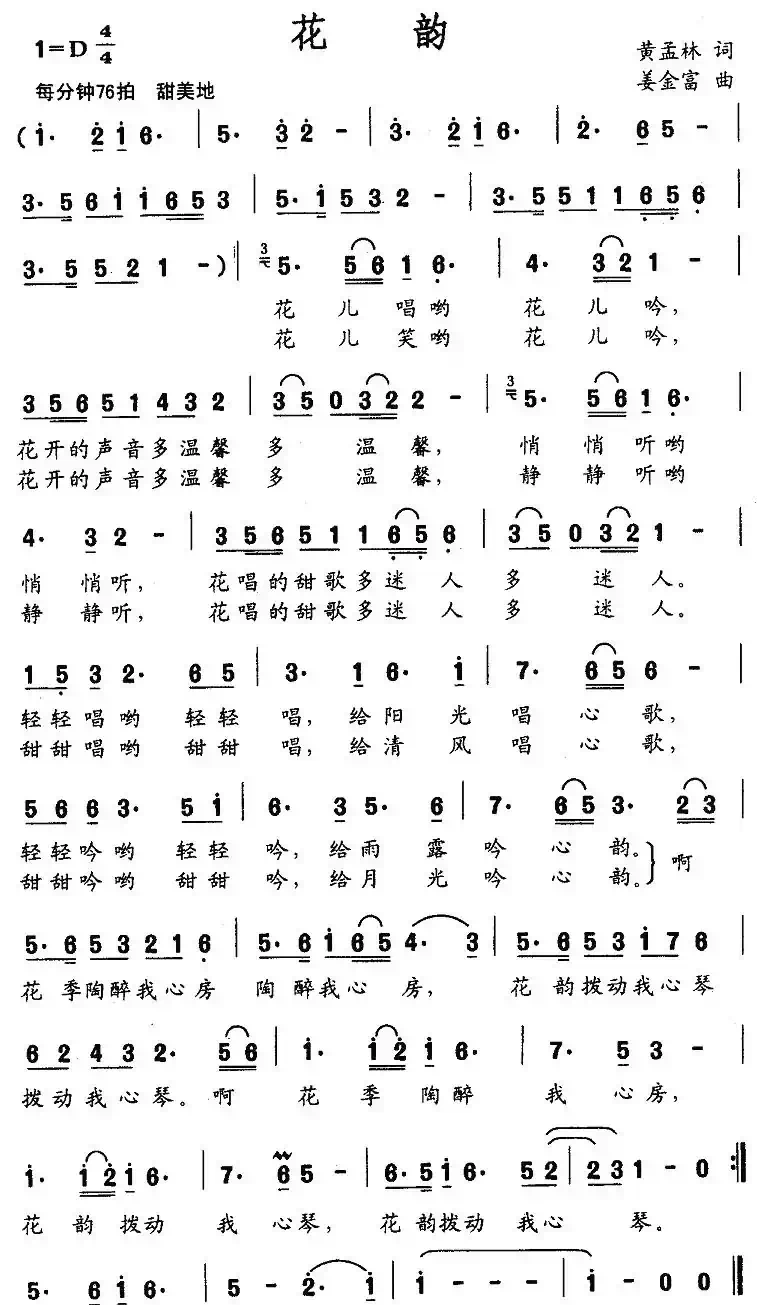 花 韵
1=D 4/4
黄孟林 词
每分钟76拍 甜美地
姜金富 曲
(1· 2 1 6· | 5· 3 2 - | 3· 2 1 6· | 2· 6 5 - |
3· 5 6 1 1 6 5 3 | 5· 1 5 3 2 - | 3· 5 5 1 1 6 5 6 |
3· 5 5 2 1 -) 3 5· 5 6 1 6· | 4· 3 2 1 - |
花 儿 唱哟 花 儿 吟,
花 儿 笑哟 花 儿 吟,
3 5 6 5 1 4 3 2 | 3 5 0 3 2 2 - | 3 5· 5 6 1 6·
花开的声音多温馨 多 温 馨, 悄 悄 听哟
花开的声音多温馨 多 温 馨, 静 静 听哟
4· 3 2 - | 3 5 6 5 1 1 6 5 6 | 3 5 0 3 2 1 - |
悄 悄听, 花唱的甜歌多迷 人 多 迷 人。
静 静听, 花唱的甜歌多迷 人 多 迷 人。
1 5 3 2· 6 5 | 3· 1 6· 1 | 7· 6 5 6 - |
轻轻唱哟 轻轻 唱, 给阳 光 唱 心 歌,
甜甜唱哟 甜甜 唱, 给清 风 唱 心 歌,
5 6 6 3· 5 1 | 6· 3 5· 6 | 7· 6 5 3· 2 3 |
轻轻吟哟 轻轻 吟, 给雨 露 吟 心 韵。
甜甜吟哟 甜甜 吟, 给月 光 吟 心 韵。} 啊
5· 6 5 3 2 1 6 | 5· 6 1 6 5 4· 3 | 5· 6 5 3 1 7 6 |
花 季陶醉我心房 陶 醉我心 房, 花 韵拨动我心琴
6 2 4 3 2· 5 6 | 1· 1 2 1 6· | 7· 5 3 - |
拨动我心琴。啊 花 季 陶醉 我 心房,
1· 1 2 1 6· | 7· 6 5 - | 6· 5 1 6· 5 2 | 2 3 1 - 0 :|
花 韵 拨动 我 心琴, 花 韵拨动 我心 琴。
5· 6 1 6· | 5 - 2· 1 | 1 - - - | 1 - 0 0 ‖